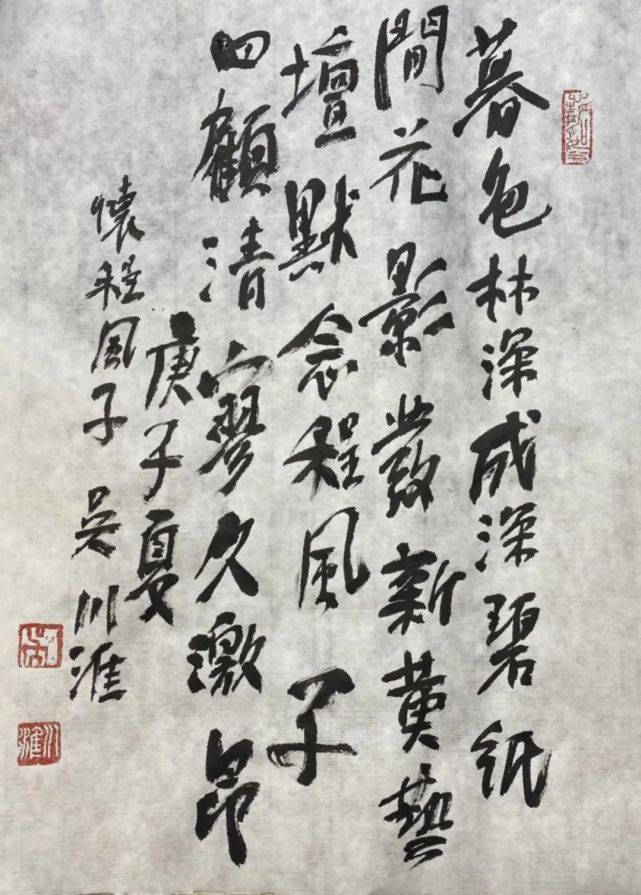 暮色林深成深碧紙
間花影發新黄藝
壇默念程風子
四顧清寥久激昂
庚子夏
懷程風子 吴川淮